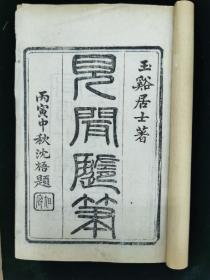 玉谿居士著
見聞隨筆
丙寅中秋沈梧題